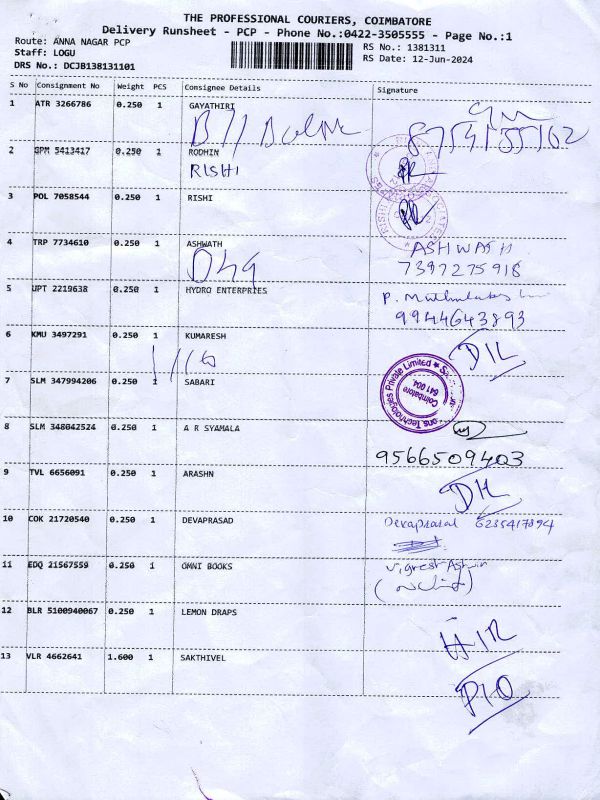 THE PROFESSIONAL COURIERS, COIMBATORE
Delivery Runsheet - PCP - Phone No.:0422-3505555 - Page No.:1
Route: ANNA NAGAR PCP
Staff: LOGU
DRS No.: DCJB138131101
RS No.: 1381311
RS Date: 12-Jun-2024
S No Consignment No Weight PCS Consignee Details Signature
1 ATR 3266786 0.250 1 GAYATHIRI
8754155162
2 GPM 5413417 0.250 1 RODHIN
RISHI
3 POL 7058544 0.250 1 RISHI
4 TRP 7734610 0.250 1 ASHWATH
ASHWASH
7397275918
5 UPT 2219638 0.250 1 HYDRO ENTERPRIES
9944643893
6 KMU 3497291 0.250 1 KUMARESH
D/L
7 SLM 347994206 0.250 1 SABARI
Technologies Private Limited
Coimbatore
641 004.
8 SLM 348042524 0.250 1 A R SYAMALA
9566509403
9 TVL 6656091 0.250 1 ARASHN
10 COK 21720540 0.250 1 DEVAPRASAD
Devaprasad 6235417894
11 EDQ 21567559 0.250 1 OMNI BOOKS
12 BLR 5100940067 0.250 1 LEMON DRAPS
13 VLR 4662641 1.600 1 SAKTHIVEL